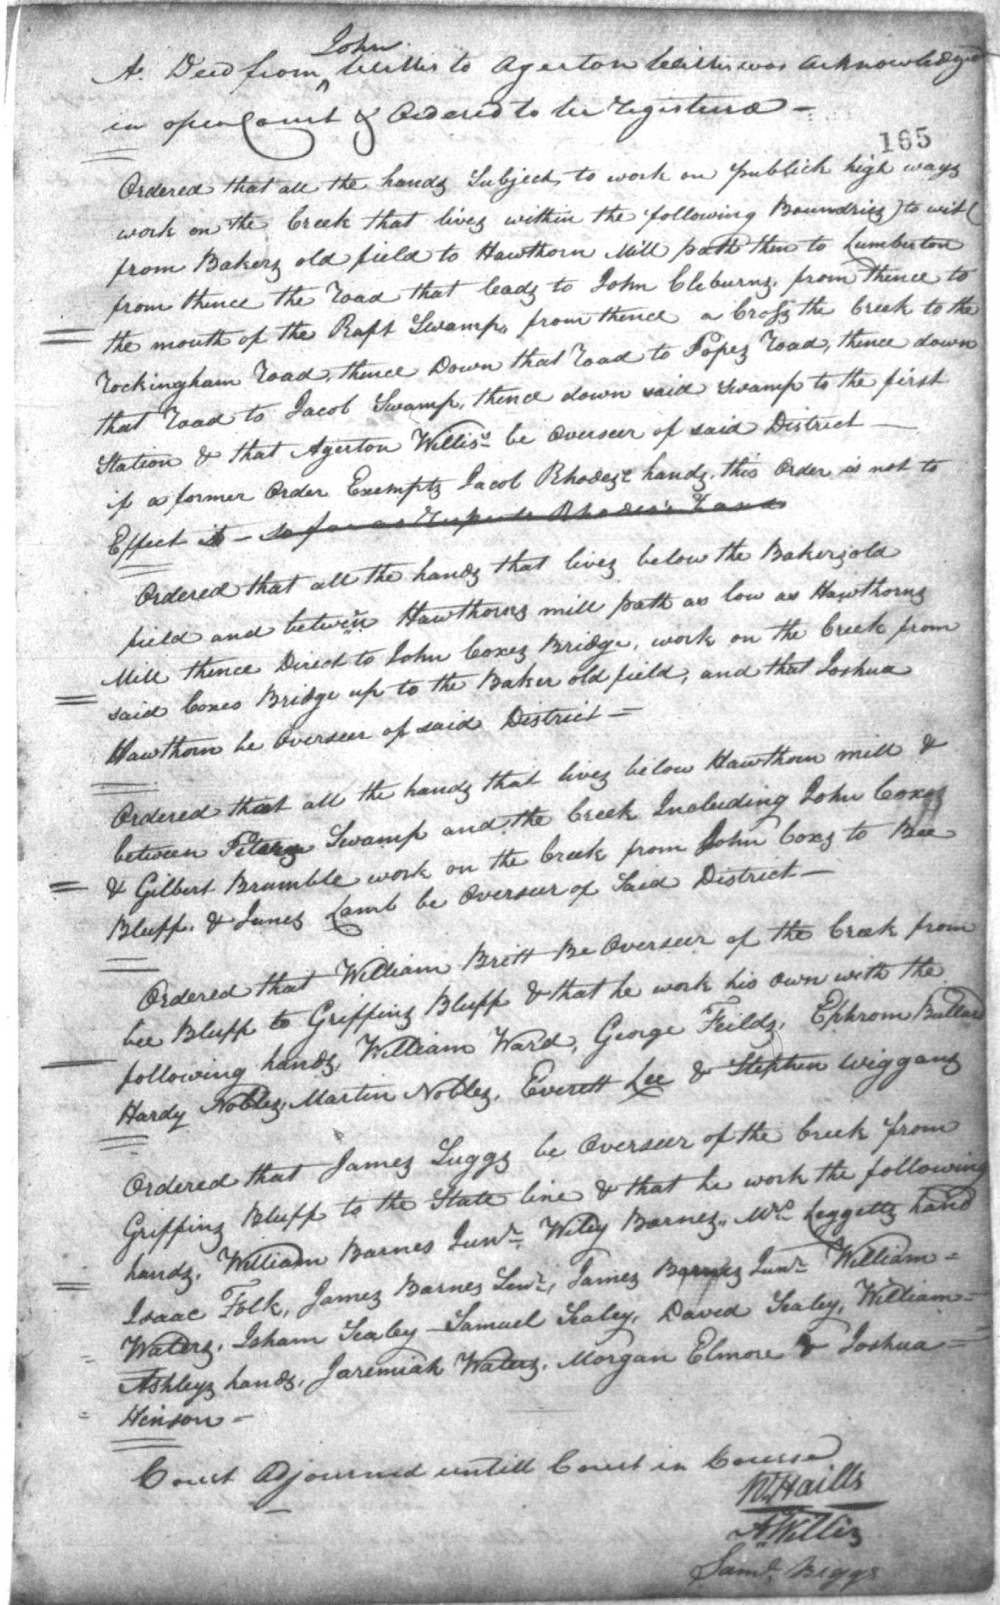 A Deed from John Willis to Agerton Willis was acknowledged
in open Court & Ordered to be Registered –
165
Ordered that all the handz Subject to work on publick high wayz
work on the Creek that livez within the following Boundriez) to wit(
from Bakerz old field to Hawthorn Mill path then to Lumberton
from thence the road that leadz to John Cleburnz, from thence to
the mouth of the Raft Swamp, from thence a Crosz the Creek to the
Rockingham road, thence Down that road to Popez road, thence down
that road to Jacob Swamp, thence down said Swamp to the first
Station & that Agerton Willis be overseer of said District –
if a former order Exemptz Jacob Rhodez handz, this order is not to
Effect it – so far as Respects Rhodes's Hands
Ordered that all the handz that livez below the Bakerz old
field and between Hawthornz mill path as low as Hawthornz
Mill thence Direct to John Coxez Bridge, work on the Creek from
said Coxes Bridge up to the Baker old field, and that Joshua
Hawthorn be overseer of said District =
Ordered that all the handz that livez below Hawthorn mill &
between Swamp and the Creek Including John Coxez
& Gilbert Brumble work on the Creek from John Coxz to Bee
Bluff. & Lamb be overseer of Said District –
Ordered that William Britt Be overseer of the Creek from
bee Bluff to Griffinz Bluff & that he work his own with the
following handz, William Ward, George Feildz, Ephrom Bullard
Hardy Noblez, Martin Noblez, Everett Lee & Stephen Wigganz
Ordered that Jamez Suggz be overseer of the Creek from
Griffinz Bluff to the State line & that he work the following
handz, William Barnes Junr, Wiley Barnez, Mrs Leggettz hand
Isaac Folk, Jamez Barnes Senr, Jamez Barnez Junr William =
Waterz, Isham Sealey – Samuel Sealey, David Sealey, William =
Ashleyz handz, Jaremiah Waterz, Morgan Elmore & Joshua =
Hinson –
Court Adjourned untill Court in Course
Haills
A. Williz
Saml. Biggs